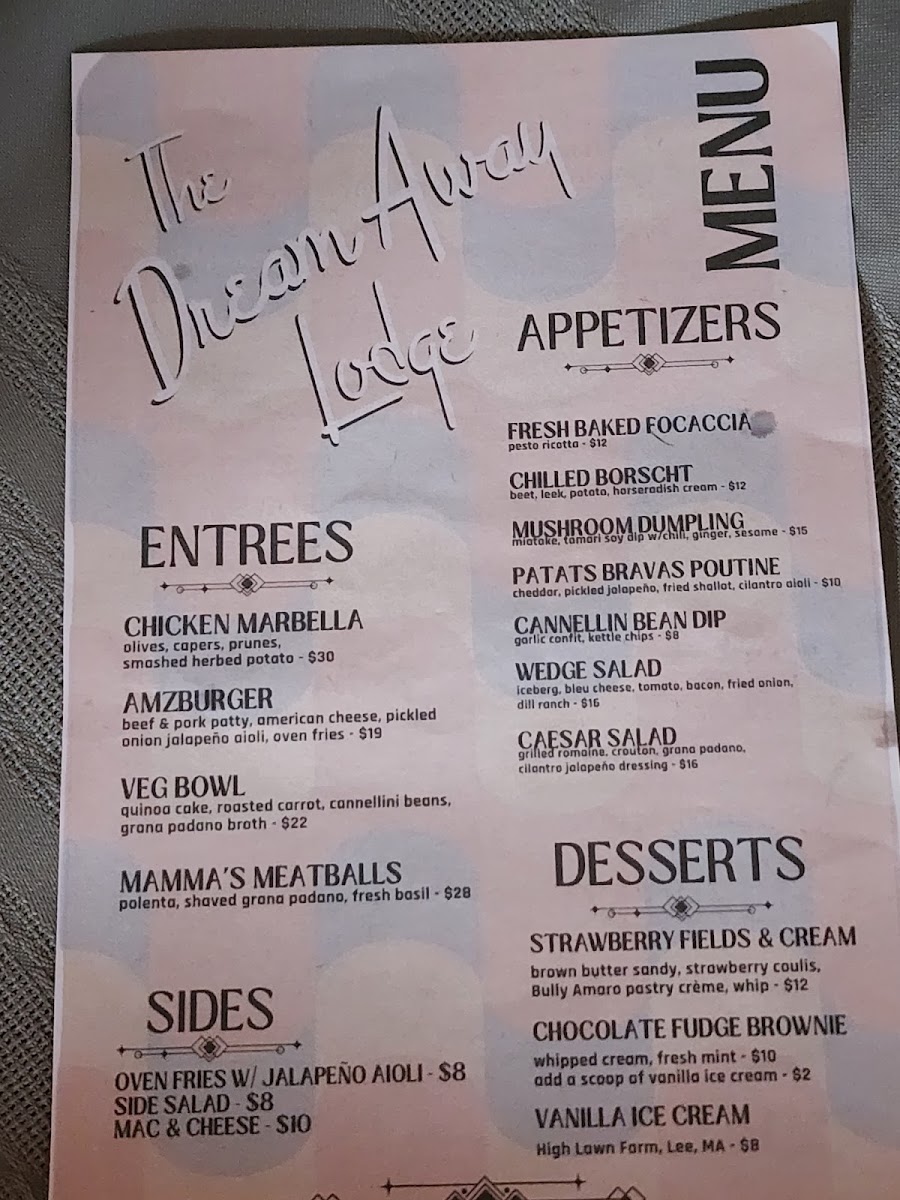 The
Dream Away
Lodge
MENU
APPETIZERS
FRESH BAKED FOCACCIA
pesto ricotta - $12
CHILLED BORSCHT
beet, leek, potato, horseradish cream - $12
MUSHROOM DUMPLING
miatake, tamari soy dip w/chili, ginger, sesame - $15
PATATS BRAVAS POUTINE
cheddar, pickled jalapeño, fried shallot, cilantro aioli - $10
CANNELLIN BEAN DIP
garlic confit, kettle chips - $8
WEDGE SALAD
iceberg, bleu cheese, tomato, bacon, fried onion,
dill ranch - $16
CAESAR SALAD
grilled romaine, crouton, grana padano,
cilantro jalapeño dressing - $16
ENTREES
CHICKEN MARBELLA
olives, capers, prunes,
smashed herbed potato - $30
AMZBURGER
beef & pork patty, american cheese, pickled
onion jalapeño aioli, oven fries - $19
VEG BOWL
quinoa cake, roasted carrot, cannellini beans,
grana padano broth - $22
MAMMA'S MEATBALLS
polenta, shaved grana padano, fresh basil - $28
SIDES
OVEN FRIES W/ JALAPEÑO AIOLI - $8
SIDE SALAD - $8
MAC & CHEESE - $10
DESSERTS
STRAWBERRY FIELDS & CREAM
brown butter sandy, strawberry coulis,
Bully Amaro pastry crème, whip - $12
CHOCOLATE FUDGE BROWNIE
whipped cream, fresh mint - $10
add a scoop of vanilla ice cream - $2
VANILLA ICE CREAM
High Lawn Farm, Lee, MA - $8